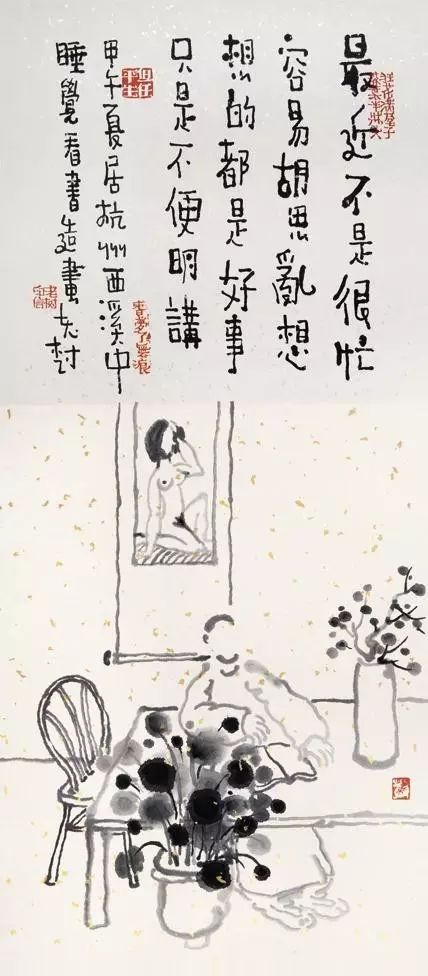 最近不是很忙
容易胡思亂想
想的都是好事
只是不便明講
甲午夏居杭州西溪中
睡覺看書造畫 老樹